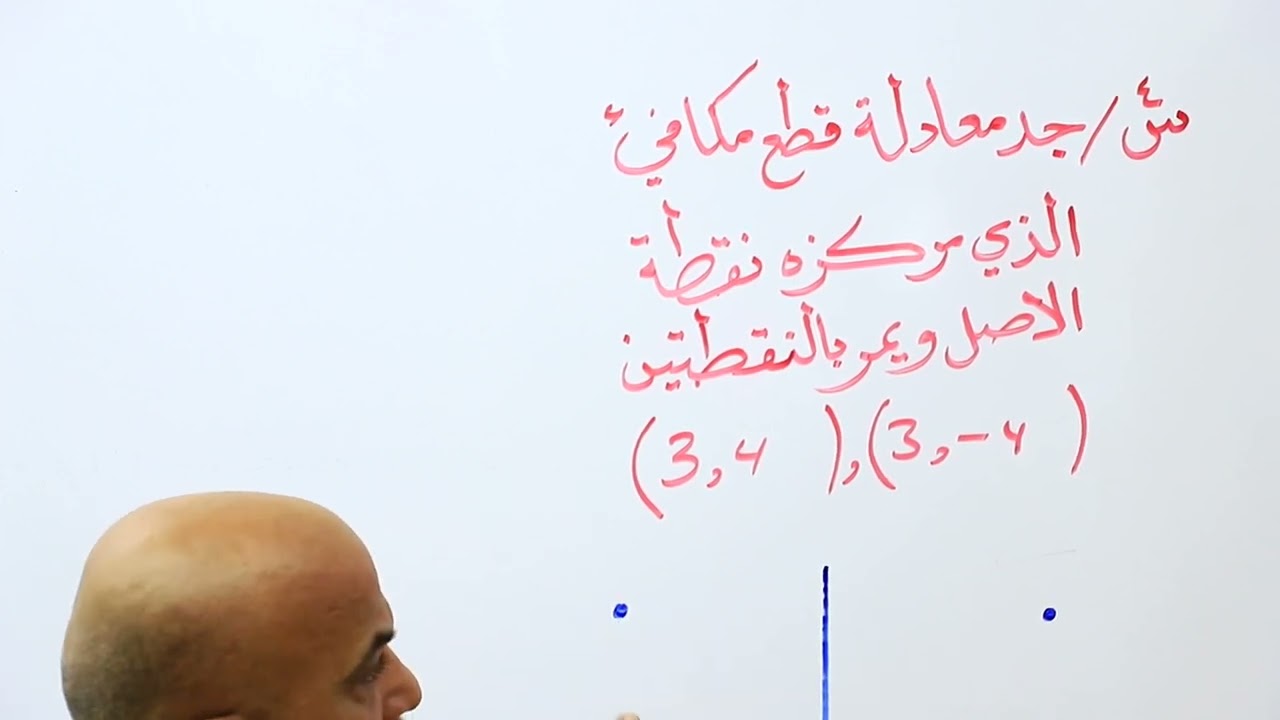 س٤/ جد معادلة قطع مكافئ
الذي مركزه نقطة
الاصل ويمر بالنقطتين
(3,4 ),(3,-4 )